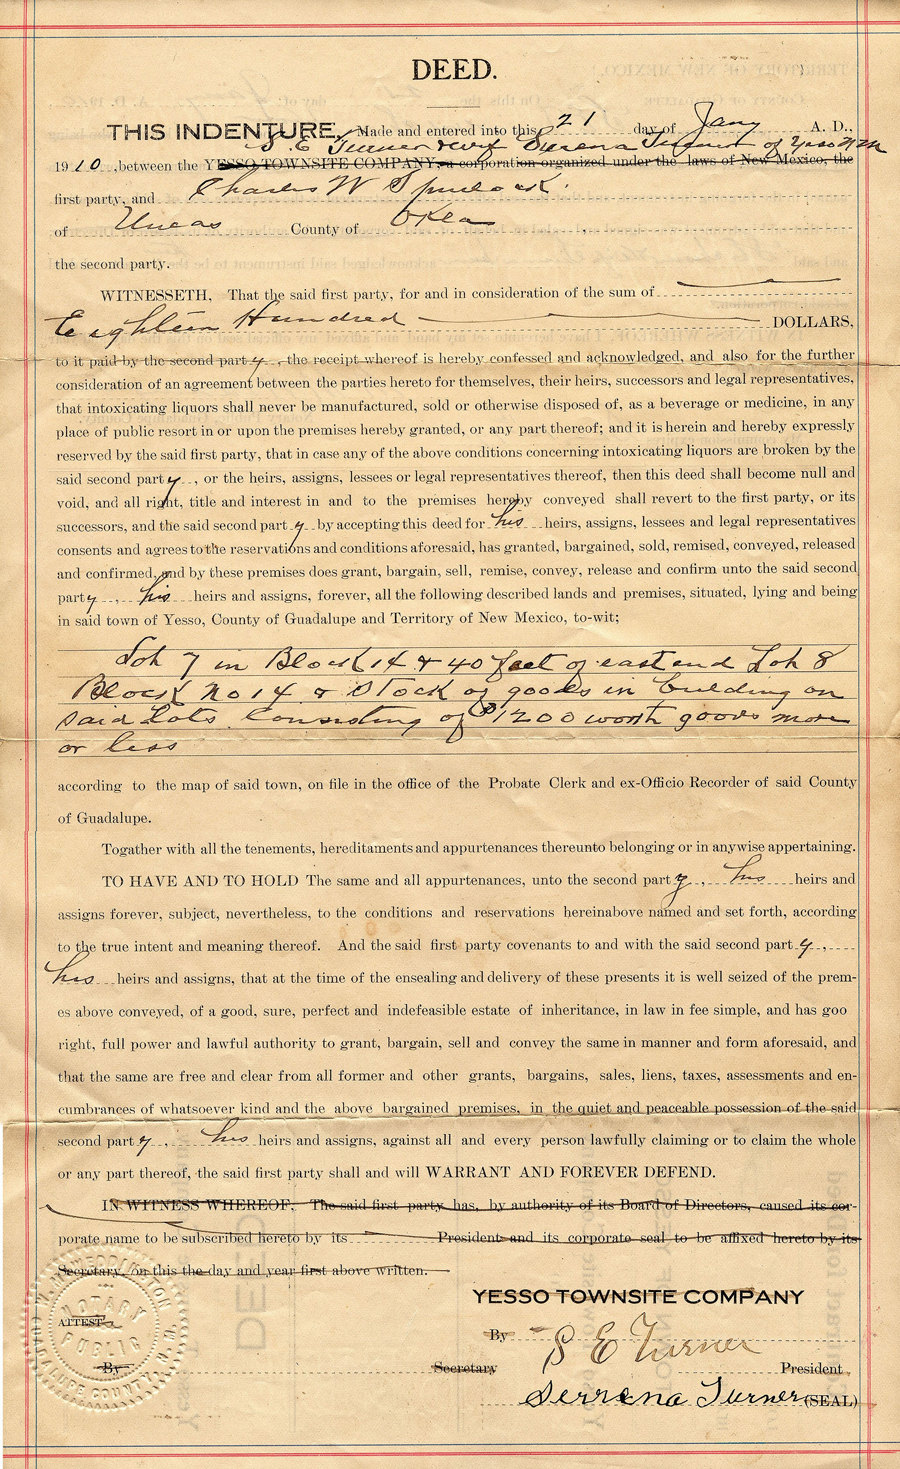 DEED.
THIS INDENTURE, Made and entered into this 21 day of Jany A. D.,
S. E. Turner & wife Surena Turner of Yeso N M
1910, between the YESSO TOWNSITE COMPANY, a corporation organized under the laws of New Mexico, the
first party, and Charles W Spurlock
of Uncas County of Okla ,
the second party.
WITNESSETH, That the said first party, for and in consideration of the sum of
Eighteen Hundred DOLLARS,
to it paid by the second party, the receipt whereof is hereby confessed and acknowledged, and also for the further
consideration of an agreement between the parties hereto for themselves, their heirs, successors and legal representatives,
that intoxicating liquors shall never be manufactured, sold or otherwise disposed of, as a beverage or medicine, in any
place of public resort in or upon the premises hereby granted, or any part thereof; and it is herein and hereby expressly
reserved by the said first party, that in case any of the above conditions concerning intoxicating liquors are broken by the
said second party, or the heirs, assigns, lessees or legal representatives thereof, then this deed shall become null and
void, and all right, title and interest in and to the premises hereby conveyed shall revert to the first party, or its
successors, and the said second party by accepting this deed for his heirs, assigns, lessees and legal representatives
consents and agrees to the reservations and conditions aforesaid, has granted, bargained, sold, remised, conveyed, released
and confirmed, and by these premises does grant, bargain, sell, remise, convey, release and confirm unto the said second
party, his heirs and assigns, forever, all the following described lands and premises, situated, lying and being
in said town of Yesso, County of Guadalupe and Territory of New Mexico, to-wit;
Lot 7 in Block 14 & 40 feet of east end Lot 8
Block No 14 & Stock of goods in building on
said Lots Consisting of $1200 worth goods more
or less
according to the map of said town, on file in the office of the Probate Clerk and ex-Officio Recorder of said County
of Guadalupe.
Togather with all the tenements, hereditaments and appurtenances thereunto belonging or in anywise appertaining.
TO HAVE AND TO HOLD The same and all appurtenances, unto the second party, his heirs and
assigns forever, subject, nevertheless, to the conditions and reservations hereinabove named and set forth, according
to the true intent and meaning thereof. And the said first party covenants to and with the said second party,
his heirs and assigns, that at the time of the ensealing and delivery of these presents it is well seized of the prem-
es above conveyed, of a good, sure, perfect and indefeasible estate of inheritance, in law in fee simple, and has goo
right, full power and lawful authority to grant, bargain, sell and convey the same in manner and form aforesaid, and
that the same are free and clear from all former and other grants, bargains, sales, liens, taxes, assessments and en-
cumbrances of whatsoever kind and the above bargained premises, in the quiet and peaceable possession of the said
second party, his heirs and assigns, against all and every person lawfully claiming or to claim the whole
or any part thereof, the said first party shall and will WARRANT AND FOREVER DEFEND.
IN WITNESS WHEREOF, The said first party has, by authority of its Board of Directors, caused its cor-
porate name to be subscribed hereto by its President and its corporate seal to be affixed hereto by its
Secretary, on this the day and year first above written.
YESSO TOWNSITE COMPANY
ATTEST
By S E Turner President
By Secretary
Serrena Turner (SEAL)
NOTARY PUBLIC
GUADALUPE COUNTY, N. M.